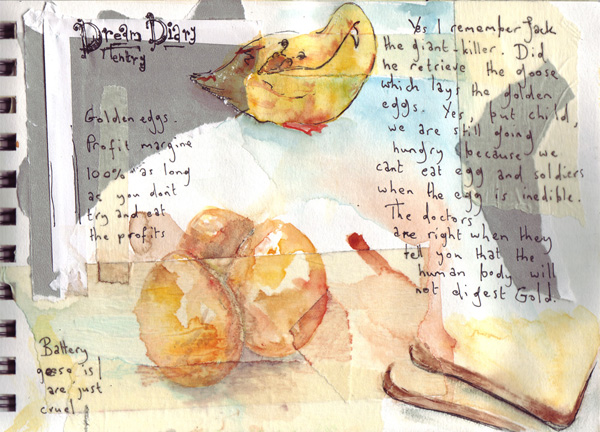 Dream Diary
entry
Golden eggs.
Profit margine
100% as long
as you don't
try and eat
the profits
Yes I remember Jack
the giant-killer. Did
he retrieve the goose
which lays the golden
eggs. Yes, but child,
we are still going
hungry because we
cant eat egg and soldiers
when the egg is inedible.
The doctors
are right when they
tell you that the
human body will
not digest Gold.
Battery
goose is
are just
cruel